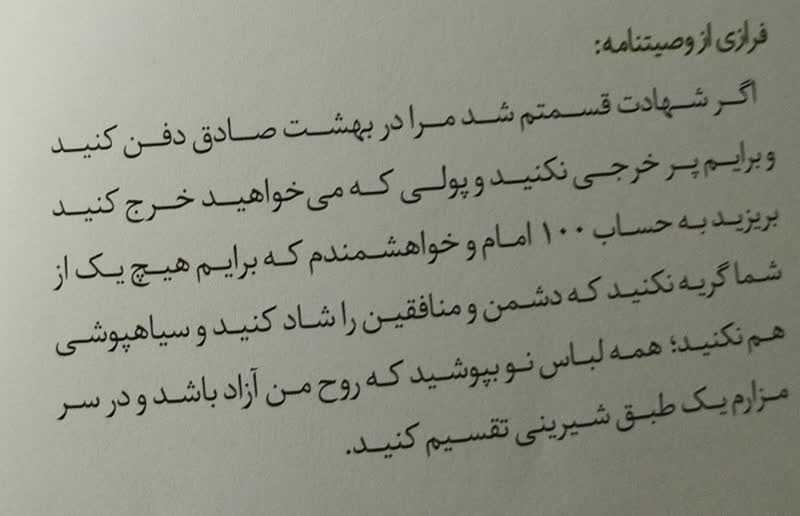 فرازی از وصیتنامه:
اگر شهادت قسمتم شد مرا در بهشت صادق دفن کنید
و برایم پر خرجی نکنید و پولی که می‌خواهید خرج کنید
بریزید به حساب ۱۰۰ امام و خواهشمندم که برایم هیچ یک از
شما گریه نکنید که دشمن و منافقین را شاد کنید و سیاهپوشی
هم نکنید؛ همه لباس نو بپوشید که روح من آزاد باشد و در سر
مزارم یک طبق شیرینی تقسیم کنید.